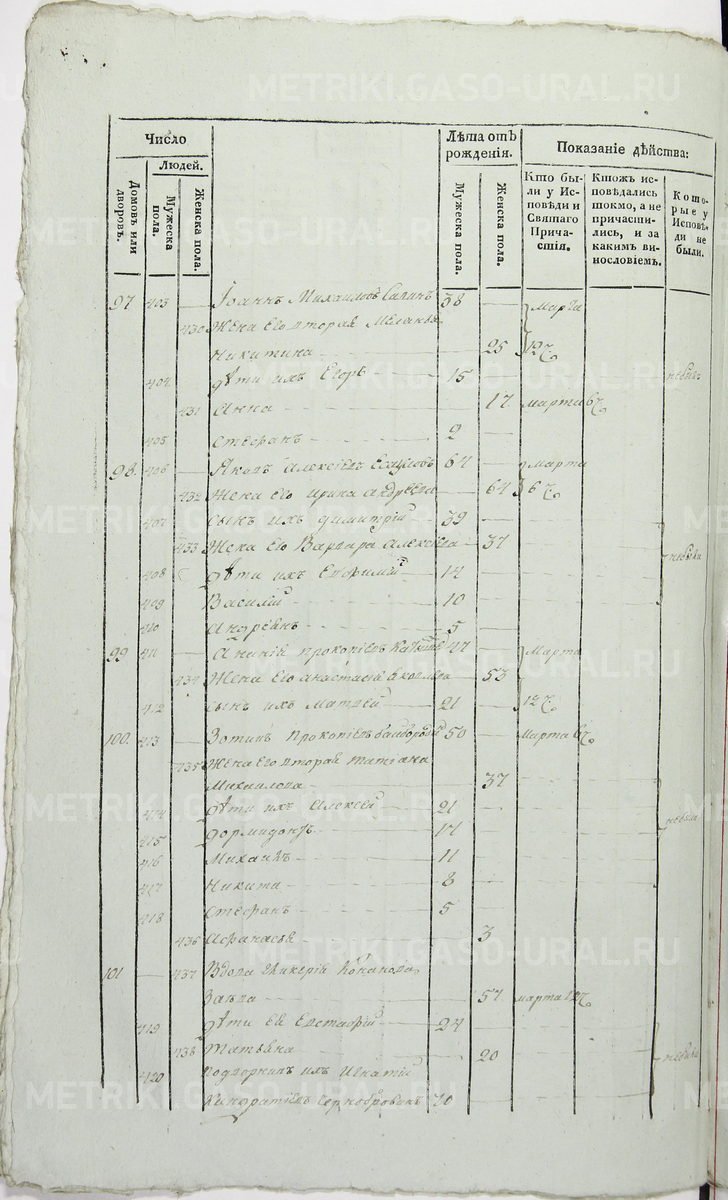 METRIKI.GASO-URAL.RU
Число
Людей.
Домовъ или дворовъ.
Мужеска пола.
Женска пола.
Лѣта отъ рожденія.
Мужеска пола.
Женска пола.
Показаніе дѣйства:
Кто были у Исповѣди и Святаго Причастія.
Ктожъ исповѣдались токмо, а не причастились, и за какимъ винословіемъ.
Которые у Исповѣди не были.
97 403 Іоаннъ Михаиловъ 38 Марта
430 Жена его вторая Меланья
Никитина 25 12
404 Дѣти ихъ Егоръ 15
431 Анна 17 марта 6
405 Стефанъ 2
98 406 Яковъ Алексѣевъ 64 марта
432 Жена его Ирина Андреева 64 6
407 Сынъ ихъ Димитрій 39
433 Жена его Варвара Алексѣева 37 небыли
408 Дѣти ихъ Ефимій 14
409 Василій 10
410 Андреянъ 5
99 411 Ананій Прокопіевъ 47 Марта
434 Жена его Анастасія 53
412 Сынъ ихъ Матвей 21 12
100 413 Зотикъ Прокопіевъ 50 марта 6
435 Жена его вторая Татіана
Михаилова 37
414 Дѣти ихъ Алексей 21
415 Дормидонтъ 17 небыли
416 Михаилъ 11
417 Никита 8
418 Стефанъ 5
436 Афанасья 3
101 437 Вдова Гликерія
57 марта 12
419 Дѣти ее Евстафій 24
438 Татьяна 20 небыли
420 Подворникъ ихъ Игнатій
70